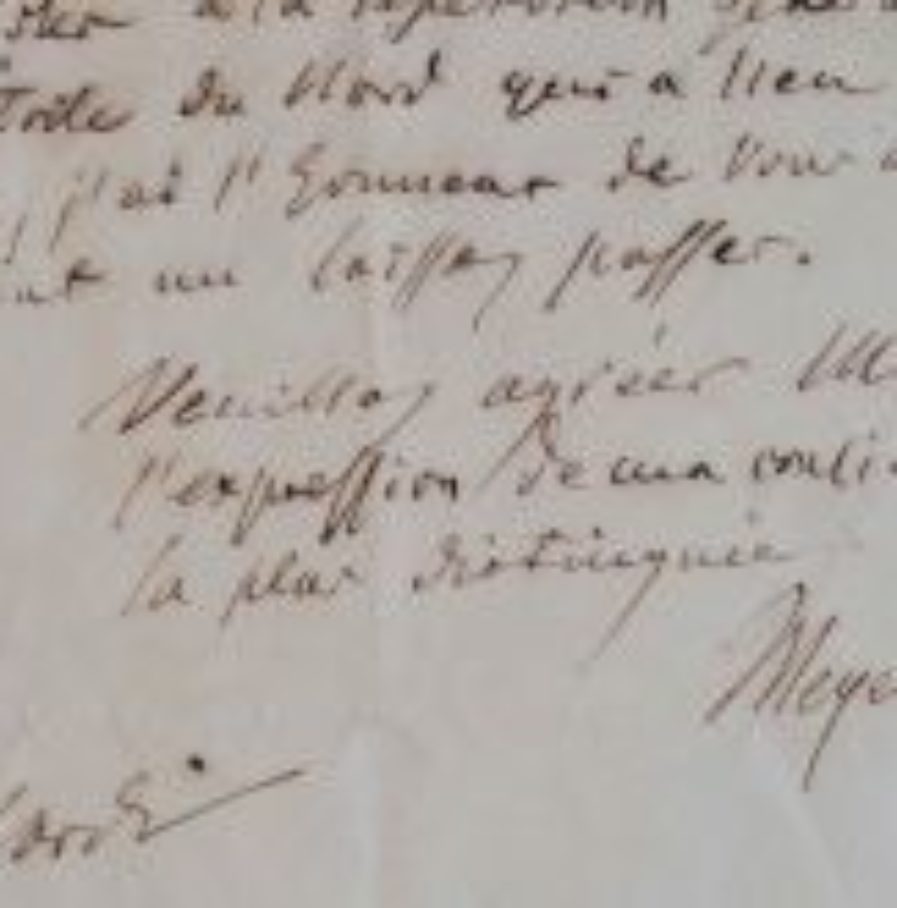 à la repetition géné
toile du Nord qui a lieu
j'ai l'honneur de Vous
un laissez passer.
Veuillez agréer M
l'expression de ma consi
la plus distinguée
Meye